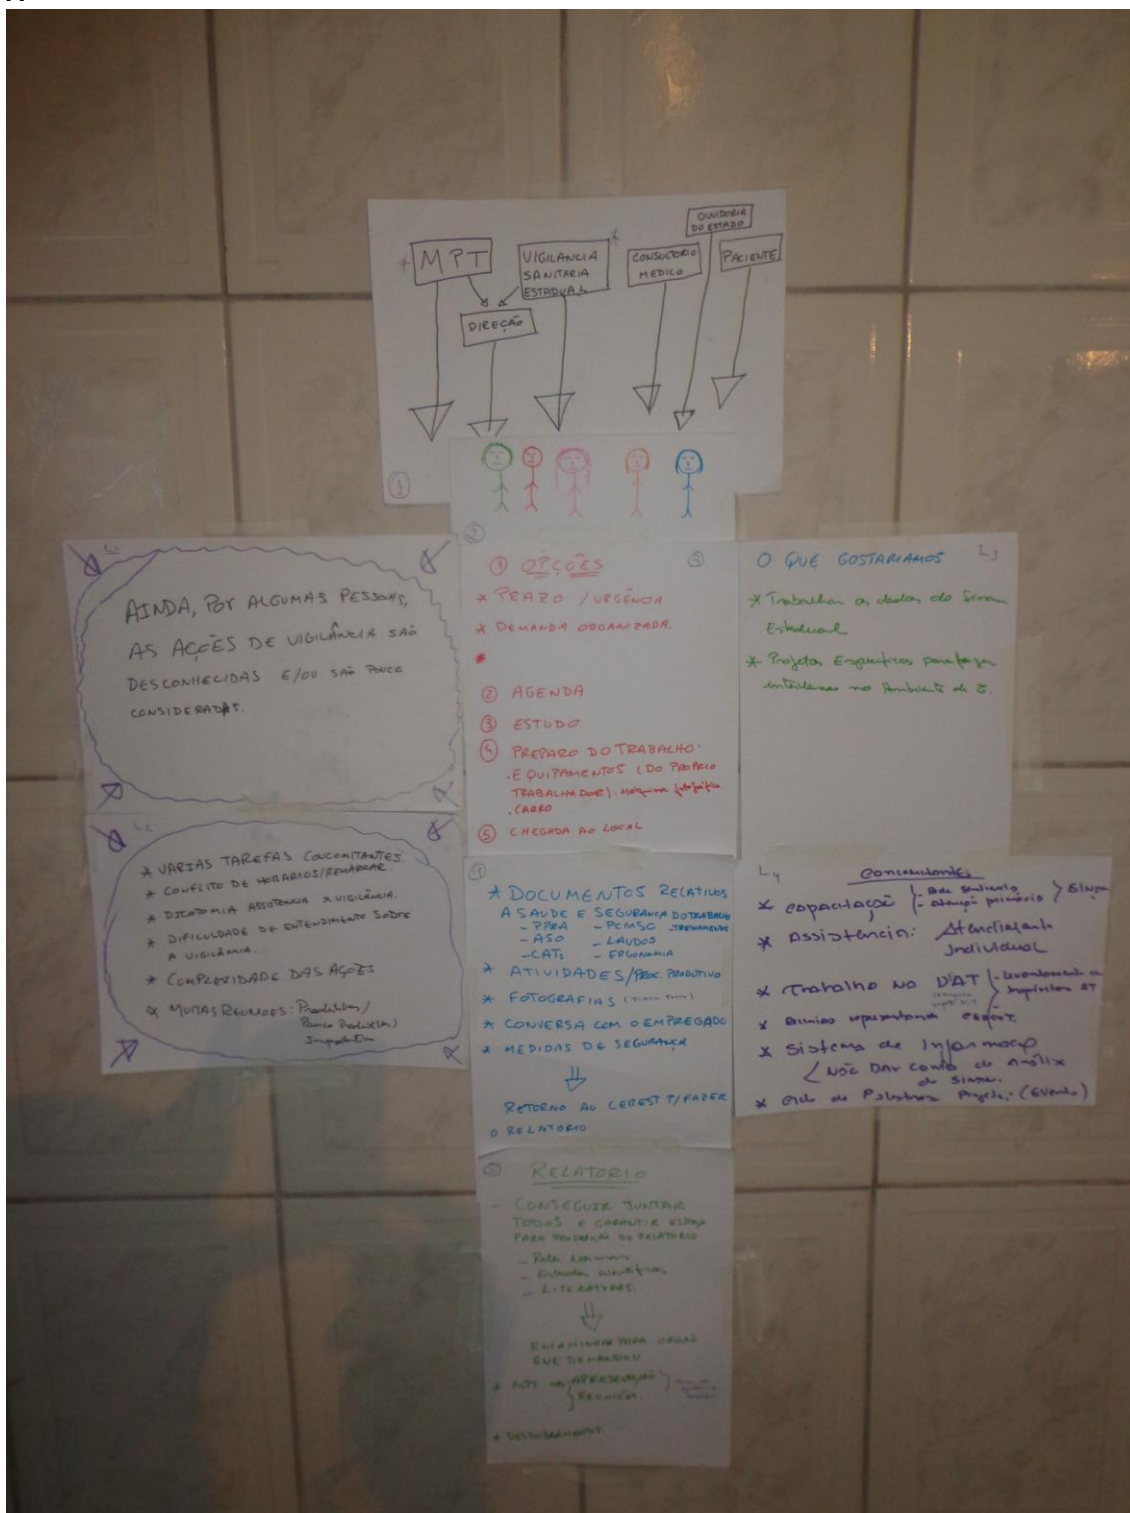 OUVIDORIA
DO ESTADO
MPT
VIGILANCIA
SANITARIA
ESTADUAL
CONSULTORIO
MEDICO
PACIENTE
DIREÇÃO
1
2
AINDA, POR ALGUMAS PESSOAS,
AS AÇÕES DE VIGILÂNCIA SÃO
DESCONHECIDAS E/OU SÃO POUCO
CONSIDERADAS.
* VARIAS TAREFAS CONCOMITANTES.
* CONFLITO DE HORARIOS/REMARCAR.
* DICOTOMIA ASSISTENCIA X VIGILÂNCIA.
* DIFICULDADE DE ENTENDIMENTO SOBRE
A VIGILÂNCIA..
* COMPLEXIDADE DAS AÇÕES
* MUITAS REUNIOES: Produtivas/
Pouco Produtivas/
① OPÇÕES
* PRAZO / URGÊNCIA
* DEMANDA ORGANIZADA.
*
② AGENDA
③ ESTUDO
④ PREPARO DO TRABALHO.
. EQUIPAMENTOS (DO PROPRIO
TRABALHADOR). máquina fotográfica
. CARRO
⑤ CHEGADA AO LOCAL
O QUE GOSTARIAMOS
L3
* Trabalhar os dados do Sinan
Estadual
* Projetos Especificos para fazer
no Ambiente de
* DOCUMENTOS RELATIVOS
A SAUDE E SEGURANÇA DO TRABALHO
- PPRA - PCMSO - TREINAMENTOS
- ASO - LAUDOS
- CATs - ERGONOMIA
* ATIVIDADES/PROC. PRODUTIVO
* FOTOGRAFIAS
* CONVERSA COM O EMPREGADO
* MEDIDAS DE SEGURANÇA
RETORNO AO CEREST P/FAZER
O RELATORIO
L4
Concomitantes
* capacitação - atenção primária
* Assistencia: Atendimento
Individual
* Trabalho no DAT
* Sistema de Informação
Não DAR conta de análise
do Sinan.
* Ciclo de Palestras (Evento)
RELATORIO
- CONSEGUIR JUNTAR
TODOS e GARANTIR ESPAÇO
PARA PRODUÇÃO DO RELATORIO
- LITERATURAS.
ENCAMINHAR PARA ORGAO
QUE DEMANDOU
APRESENTAÇÃO
REUNIÕES.